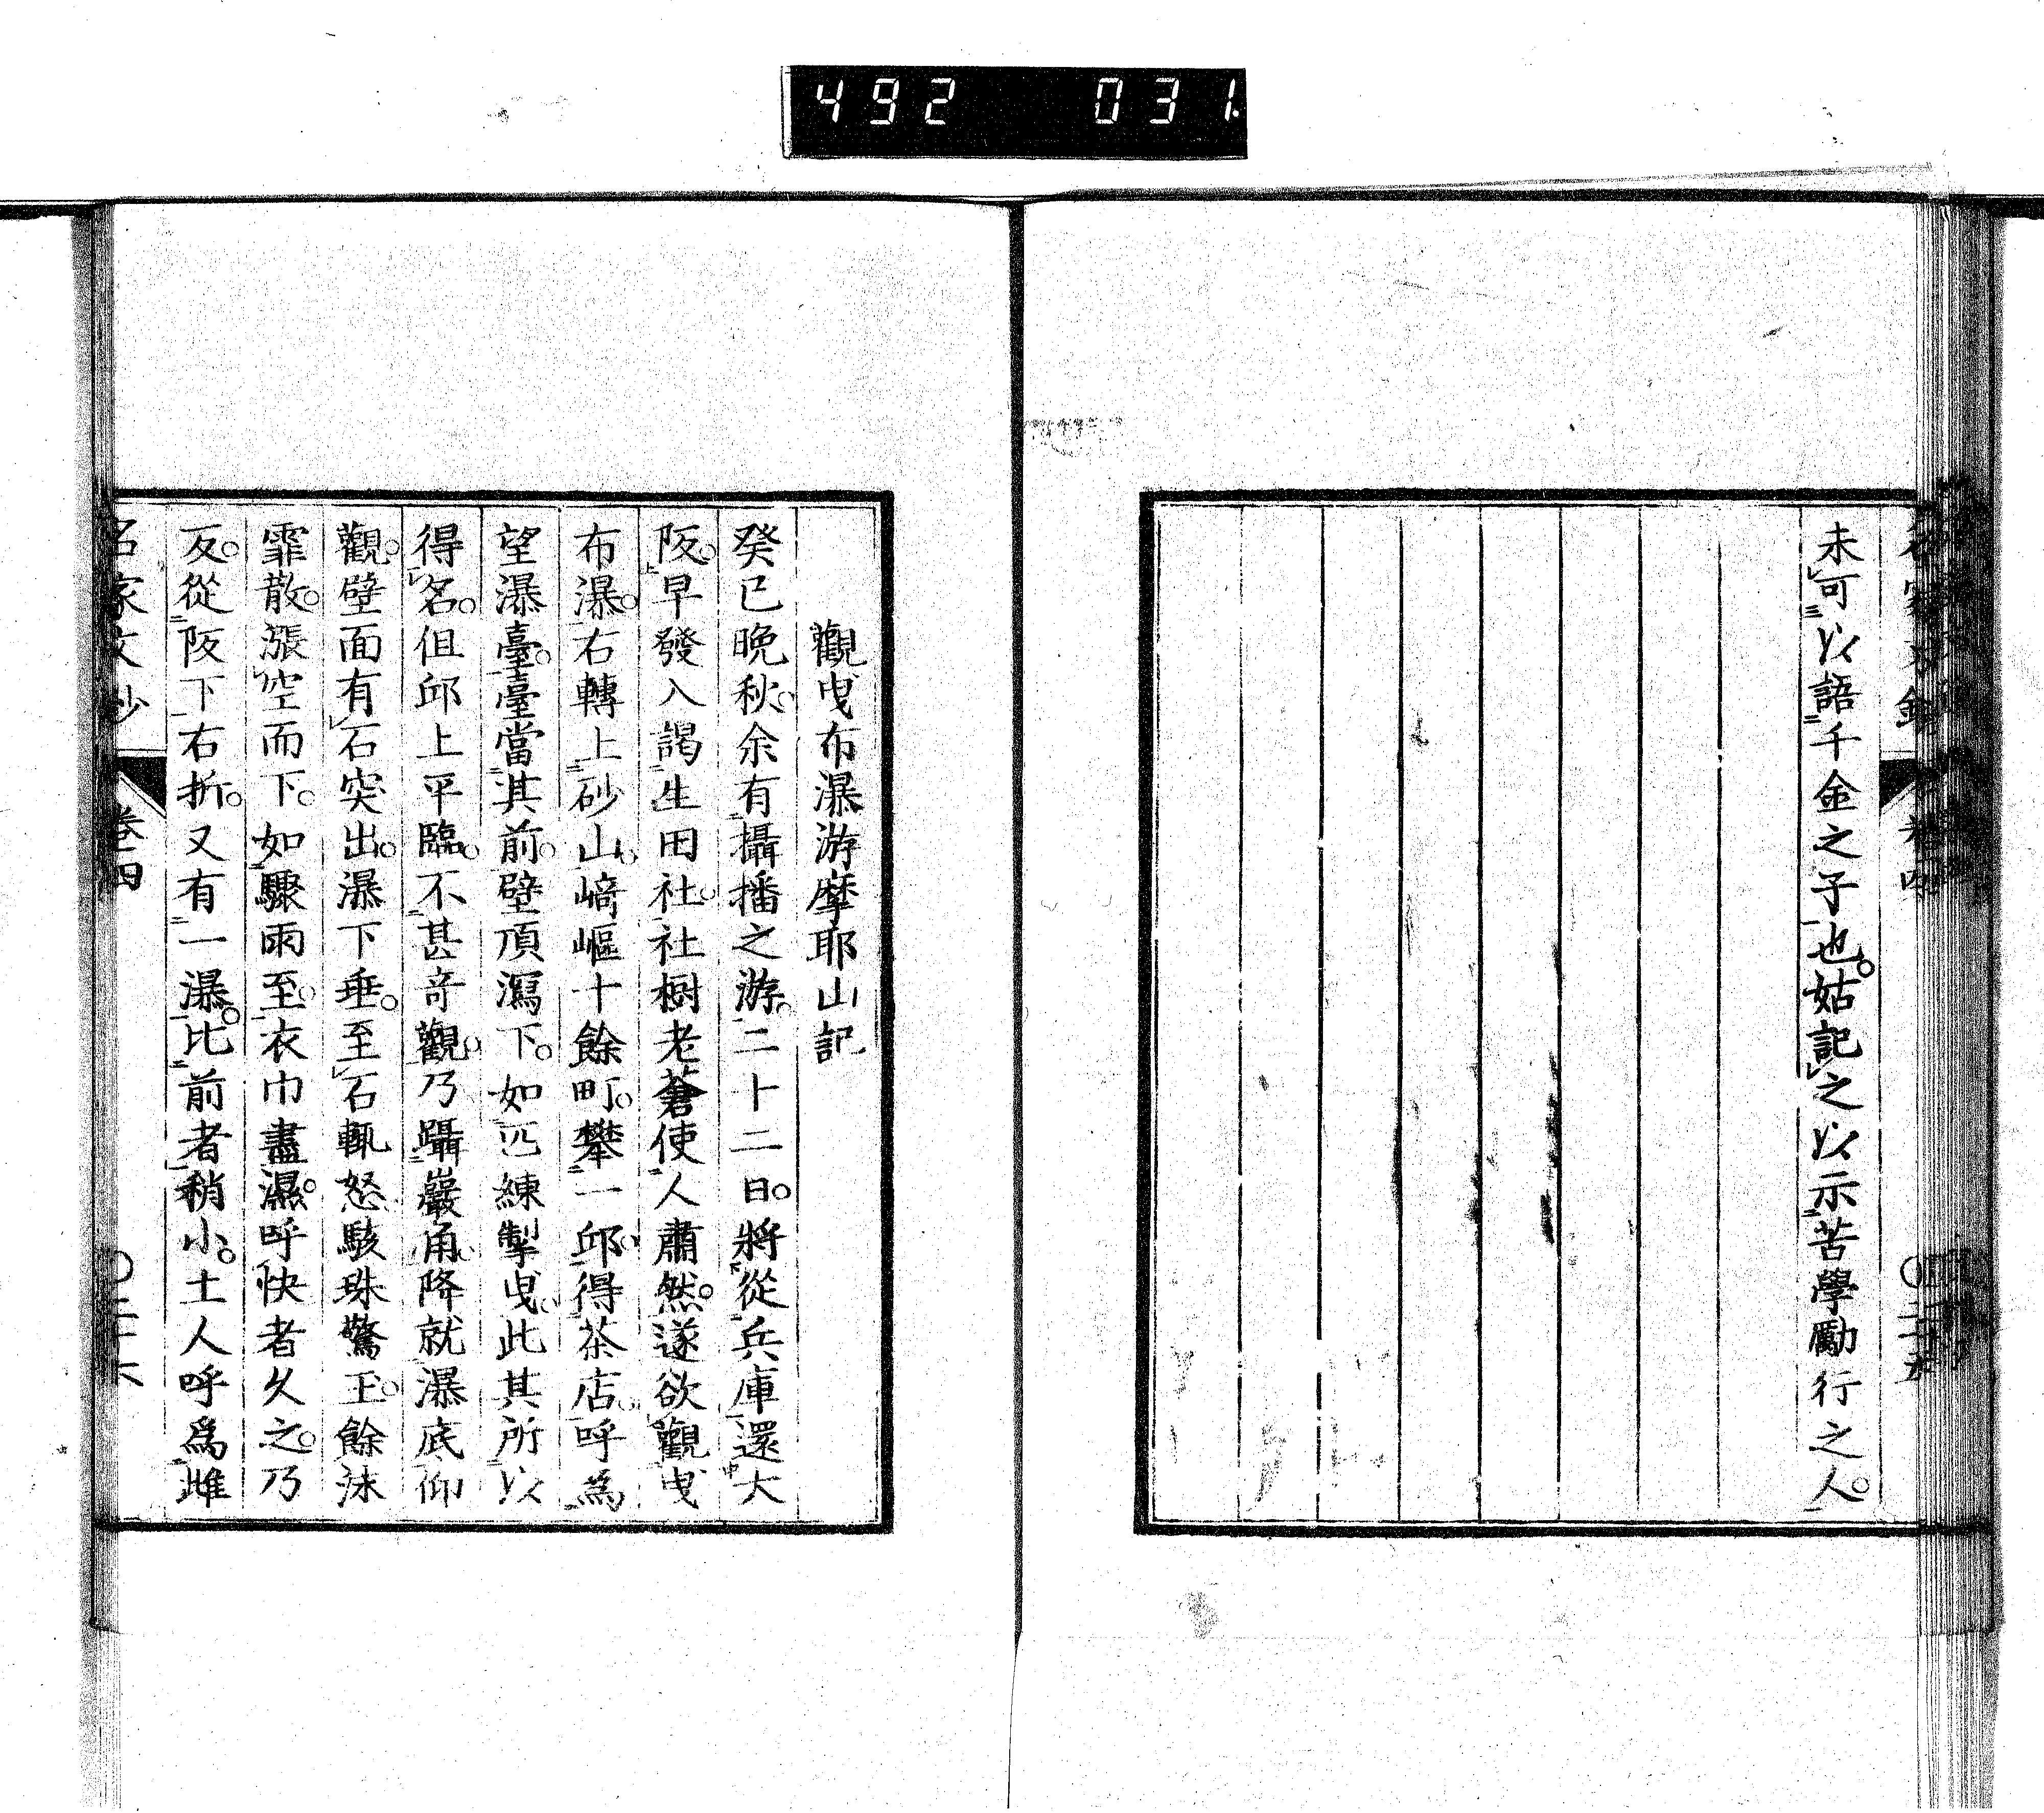 492 031
未可以語千金之子也。姑記之以示苦學勵行之人。
觀曵布瀑游摩耶山記
癸巳晚秋。余有攝播之游。二十二日。將從兵庫還大
阪。早發入謁生田社。社樹老蒼使人肅然。遂欲觀曵
布瀑。右轉上砂山。崎嶇十餘町。攀一邱。得茶店。呼為
望瀑臺。臺當其前。壁頂瀉下。如匹練掣曵。此其所以
得名。但邱上平臨。不甚奇觀。乃躡巖角。降就瀑底仰
觀。壁面有石突出。瀑下垂。至石輒怒駭珠驚玉。餘沫
霏散。漲空而下。如驟雨至。衣巾盡濕。呼快者久之。乃
反。從阪下右折。又有一瀑。比前者稍小。土人呼爲雌
名家文抄 卷四 〇二十六